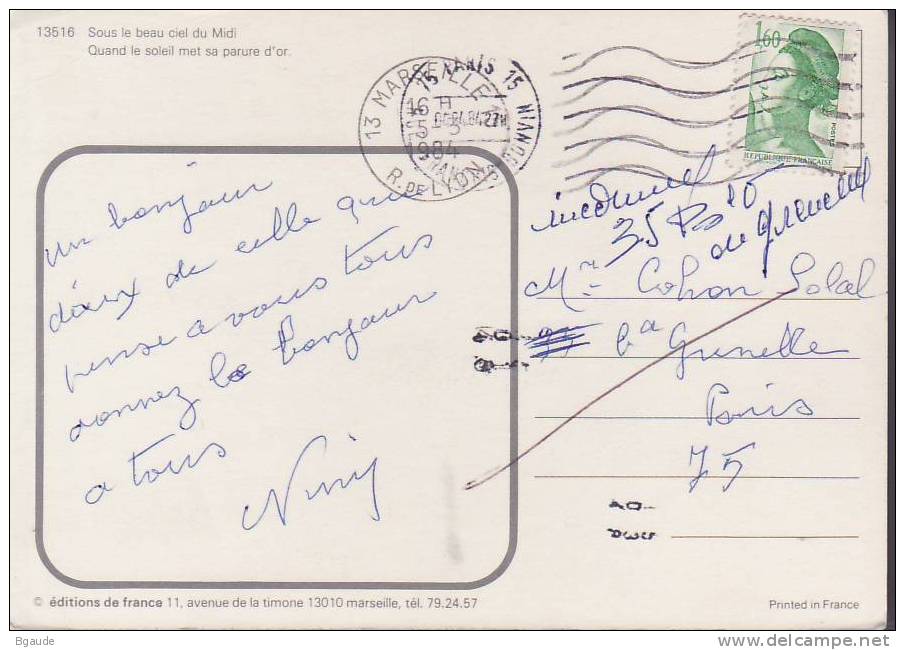 13516 Sous le beau ciel du Midi
Quand le soleil met sa parure d'or.
13 MARSEILLE
R. DE LYON
16 H
5-3
1984
PARIS 15
1,60
POSTES
REPUBLIQUE FRANÇAISE
un bonjour
deux de celle que
pense a vous tous
donnez le bonjour
a tous
Niny
inconnu
35 Bd
de Grenelle
Mr Cohon Solal
bd Grenelle
Paris
75
© éditions de france 11, avenue de la timone 13010 marseille, tél. 79.24.57
Printed in France
Bgaude
www.delcampe.net